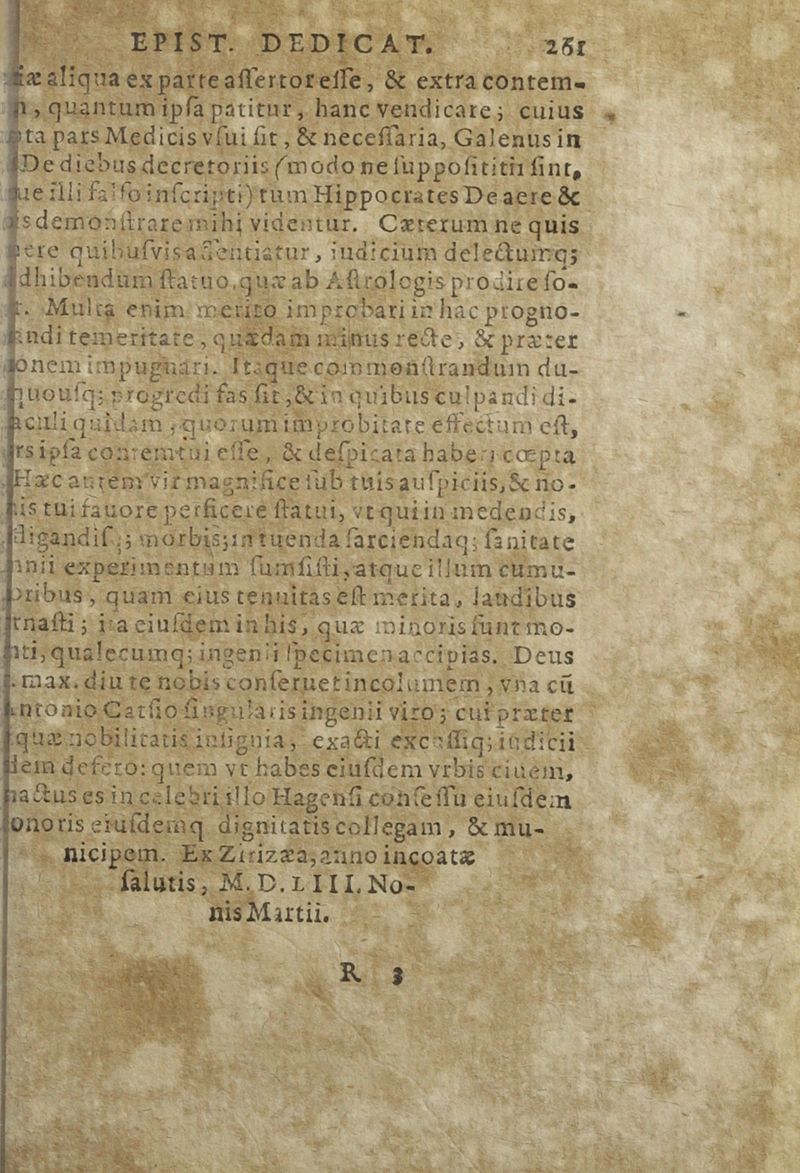 EPIST. DEDICAT. 261
aliqua ex parte assertor esse, & extra contem-
, quantum ipsa patitur, hanc vendicare; cuius
pars Medicis vsui sit, & necessaria, Galenus in
De diebus decretoriis (modo ne supposititii sint,
illi falso inscripti) tum Hippocrates De aere &
demonstrare mihi videntur. Cæterum ne quis
quibusvis assentiatur, iudicium delectumq;
dhibendum statuo, quæ ab Astrologis prodire so-
. Multa enim merito improbari in hac progno-
ndi temeritate, quædam minus recte, & præter
onem impugnari. Itaque commonstrandum du-
quousq; progredi fas sit, & in quibus culpandi di-
aculi quidam, quorum improbitate effectum est,
rs ipsa contemtui esse, & despicata haberi cœpta
Hæc autem vir magnifice sub tuis auspiciis, & no-
is tui fauore perficere statui, vt qui in medendis,
digandisq; morbis, in tuenda sarciendaq; sanitate
nii experimentum sumsisti, atque illum cumu-
oribus, quam eius tenuitas est merita, laudibus
rnasti; ita eiusdem in his, quæ minoris sunt mo-
nti, qualecumq; ingenii specimen accipias. Deus
. max. diu te nobis conseruet incolumem, vna cũ
ntonio Catsio singularis ingenii viro; cui præter
quæ nobilitatis insignia, exacti excelsiq; iudicii
dem defero: quem vt habes eiusdem vrbis ciuem,
nactus es in celebri illo Hagensi consessu eiusdem
onoris eiusdemq dignitatis collegam, & mu-
nicipem. Ex Zirizæa, anno incoatæ
salutis, M. D. LIII. No-
nis Martii.
R 3